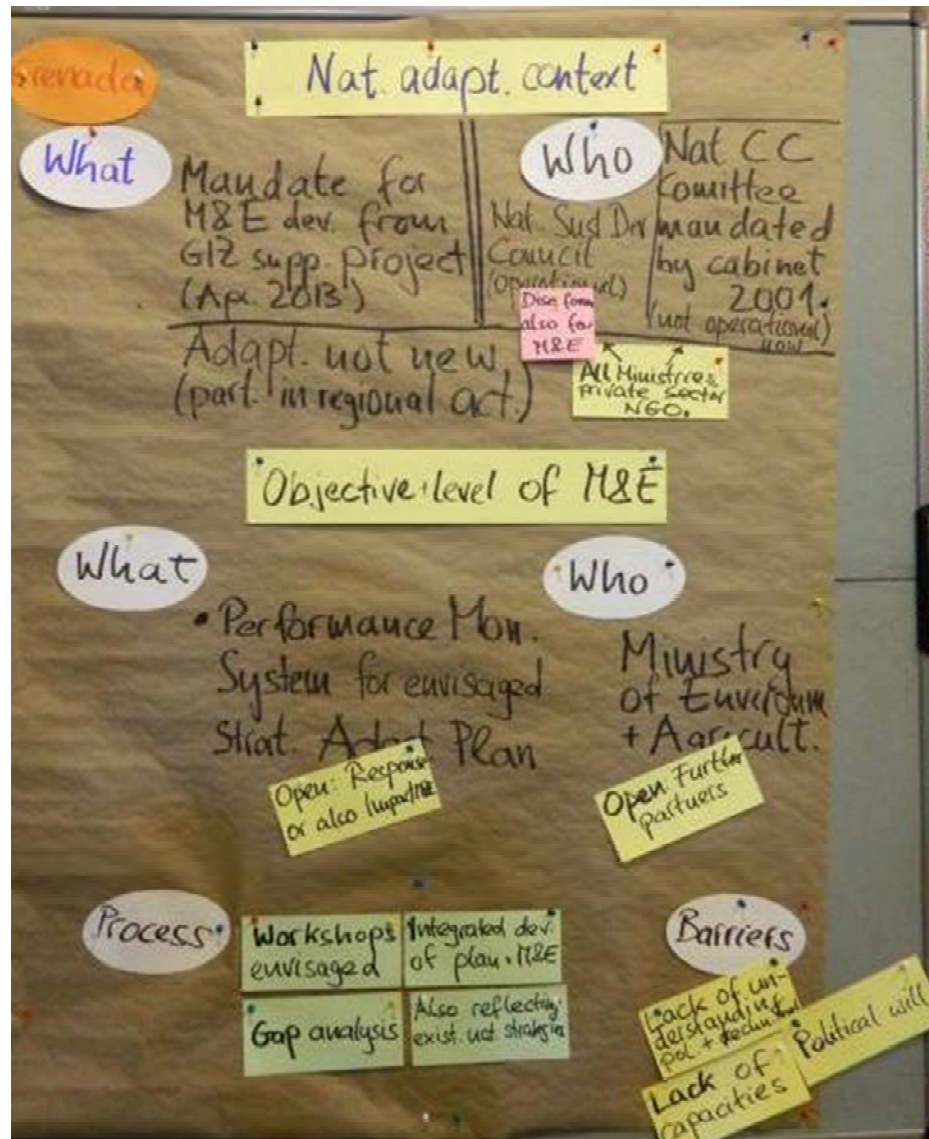 Grenada
Nat. adapt. context
What
Mandate for
M&E dev. from
GIZ supp. project
(Apr. 2013)
Who
Nat. Sust Dev
Council
(operational)
Nat CC
Comittee
mandated
by cabinet
2001.
(not operational)
now
also for
M&E
All Ministries
private sector
NGO.
Adapt. not new,
(part. in regional act.)
Objective + level of M&E
What
• Performance Mon.
System for envisaged
Strat. Adapt Plan
Open: Response
or also
Who
Ministry
of Environm
+ Agricult.
Open Further
partners
Process
Workshops
envisaged
Integrated dev.
of plan + M&E
Gap analysis
Also reflecting
exist. nat. strategies
Barriers
Lack of un-
derstanding
pol. + technical
Political will
Lack of
capacities